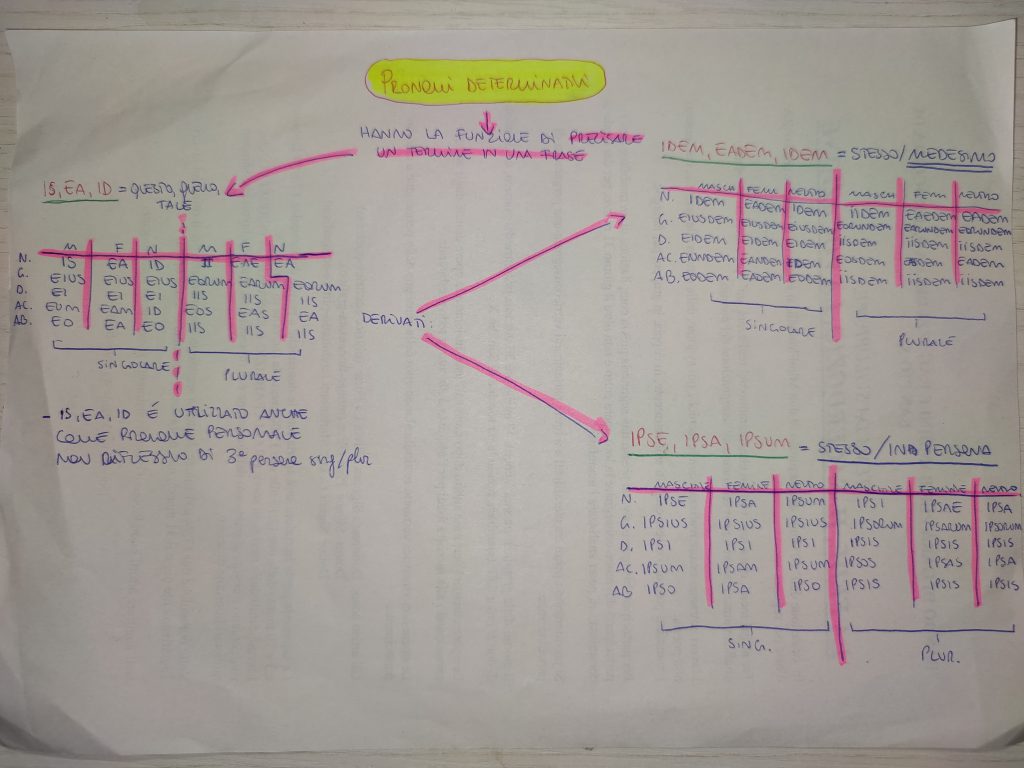 PRONOMI DETERMINATIVI
HANNO LA FUNZIONE DI PRECISARE
UN TERMINE IN UNA FRASE
IS, EA, ID = QUESTO, QUELLO,
TALE
M F N M F N
N. IS EA ID II EAE EA
G. EIUS EIUS EIUS EORUM EARUM EORUM
D. EI EI EI IIS IIS IIS
AC. EUM EAM ID EOS EAS EA
AB. EO EA EO IIS IIS IIS
SINGOLARE PLURALE
- IS, EA, ID É UTILIZZATO ANCHE
COME PRONOME PERSONALE
NON RIFLESSIVO DI 3ª persona sing/plur
DERIVATI:
IDEM, EADEM, IDEM = STESSO/MEDESIMO
MASCH FEMM NEUTRO MASCH FEMM NEUTRO
N. IDEM EADEM IDEM iiDEM EAEDEM EADEM
G. EIUSDEM EIUSDEM EIUSDEM EORUNDEM EARUNDEM EORUNDEM
D. EIDEM EIDEM EIDEM iiSDEM iiSDEM iiSDEM
AC. EUNDEM EANDEM IDEM EOSDEM EASDEM EADEM
AB. EODEM EADEM EODEM iiSDEM iiSDEM iiSDEM
SINGOLARE PLURALE
IPSE, IPSA, IPSUM = STESSO/IN PERSONA
MASCHILE FEMMINILE NEUTRO MASCHILE FEMMINILE NEUTRO
N. IPSE IPSA IPSUM IPSI IPSAE IPSA
G. IPSIUS IPSIUS IPSIUS IPSORUM IPSARUM IPSORUM
D. IPSI IPSI IPSI IPSIS IPSIS IPSIS
AC. IPSUM IPSAM IPSUM IPSOS IPSAS IPSA
AB IPSO IPSA IPSO IPSIS IPSIS IPSIS
SING. PLUR.